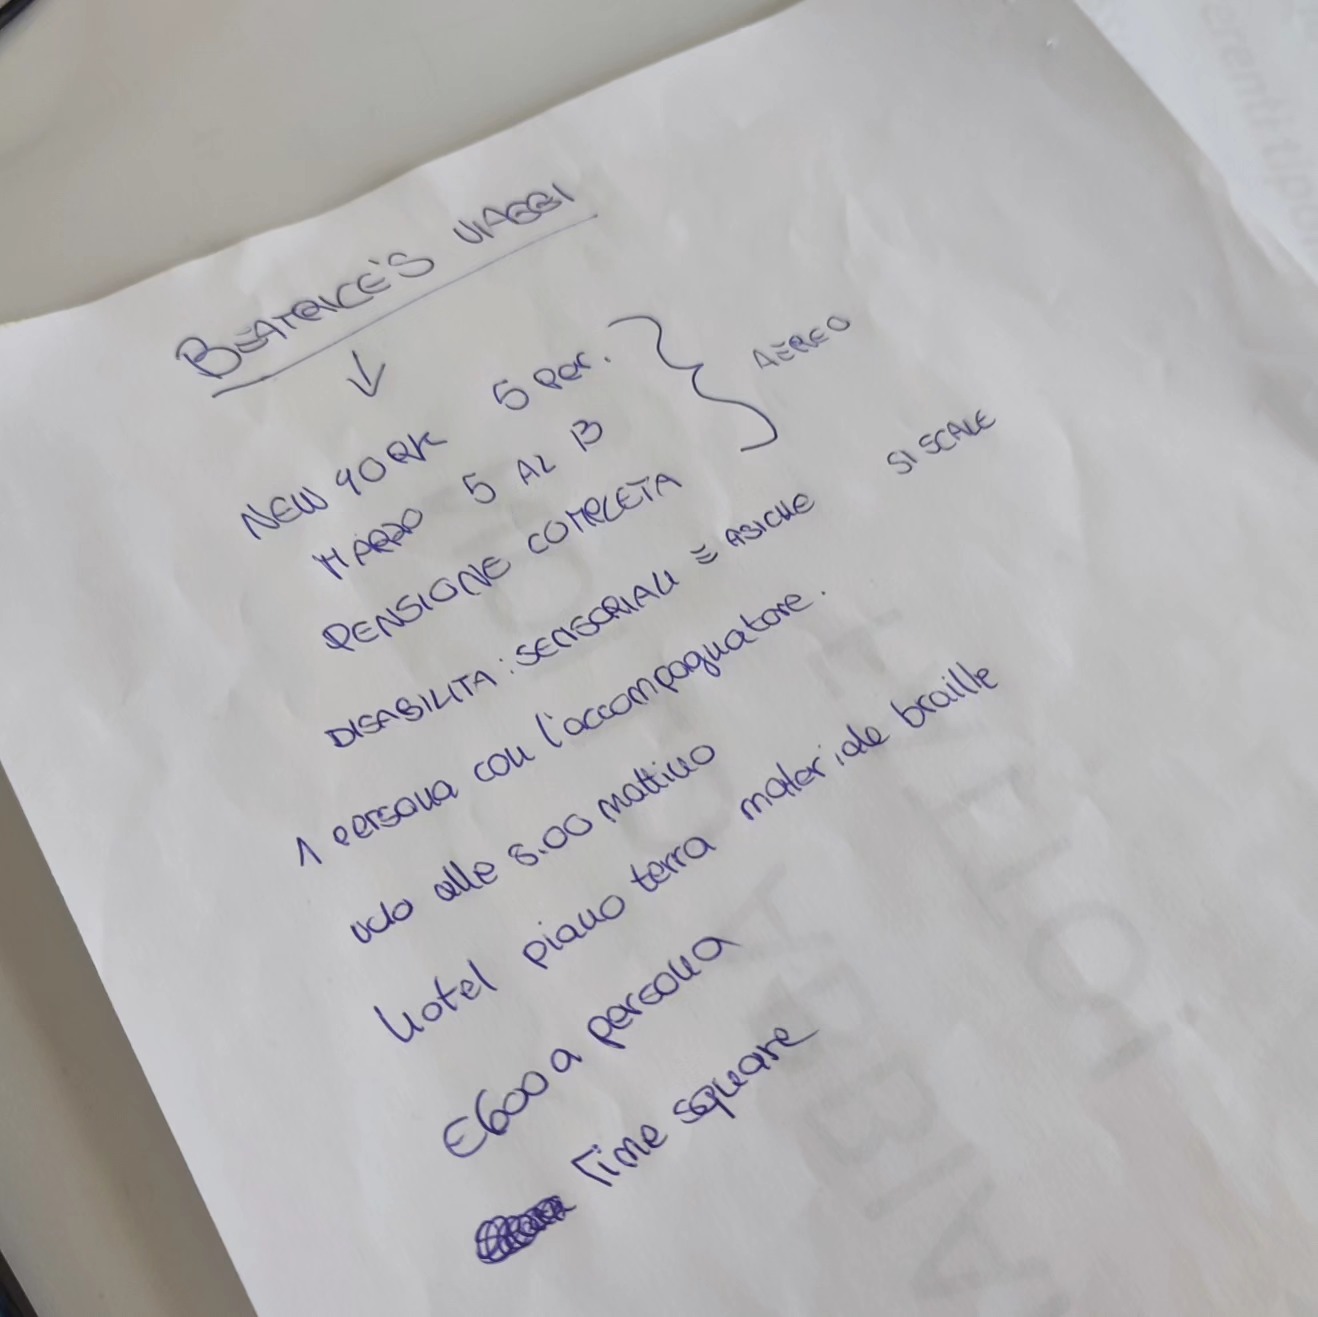 BEATRICE'S VIAGGI
NEW YORK 5 per.
MARZO 5 AL 13
AEREO
PENSIONE COMPLETA
DISABILITA: SENSORIALI E FISICHE SI SCALE
1 persona con l'accompagnatore.
volo alle 8.00 mattino
hotel piano terra materiale braille
€600 a persona
Time square